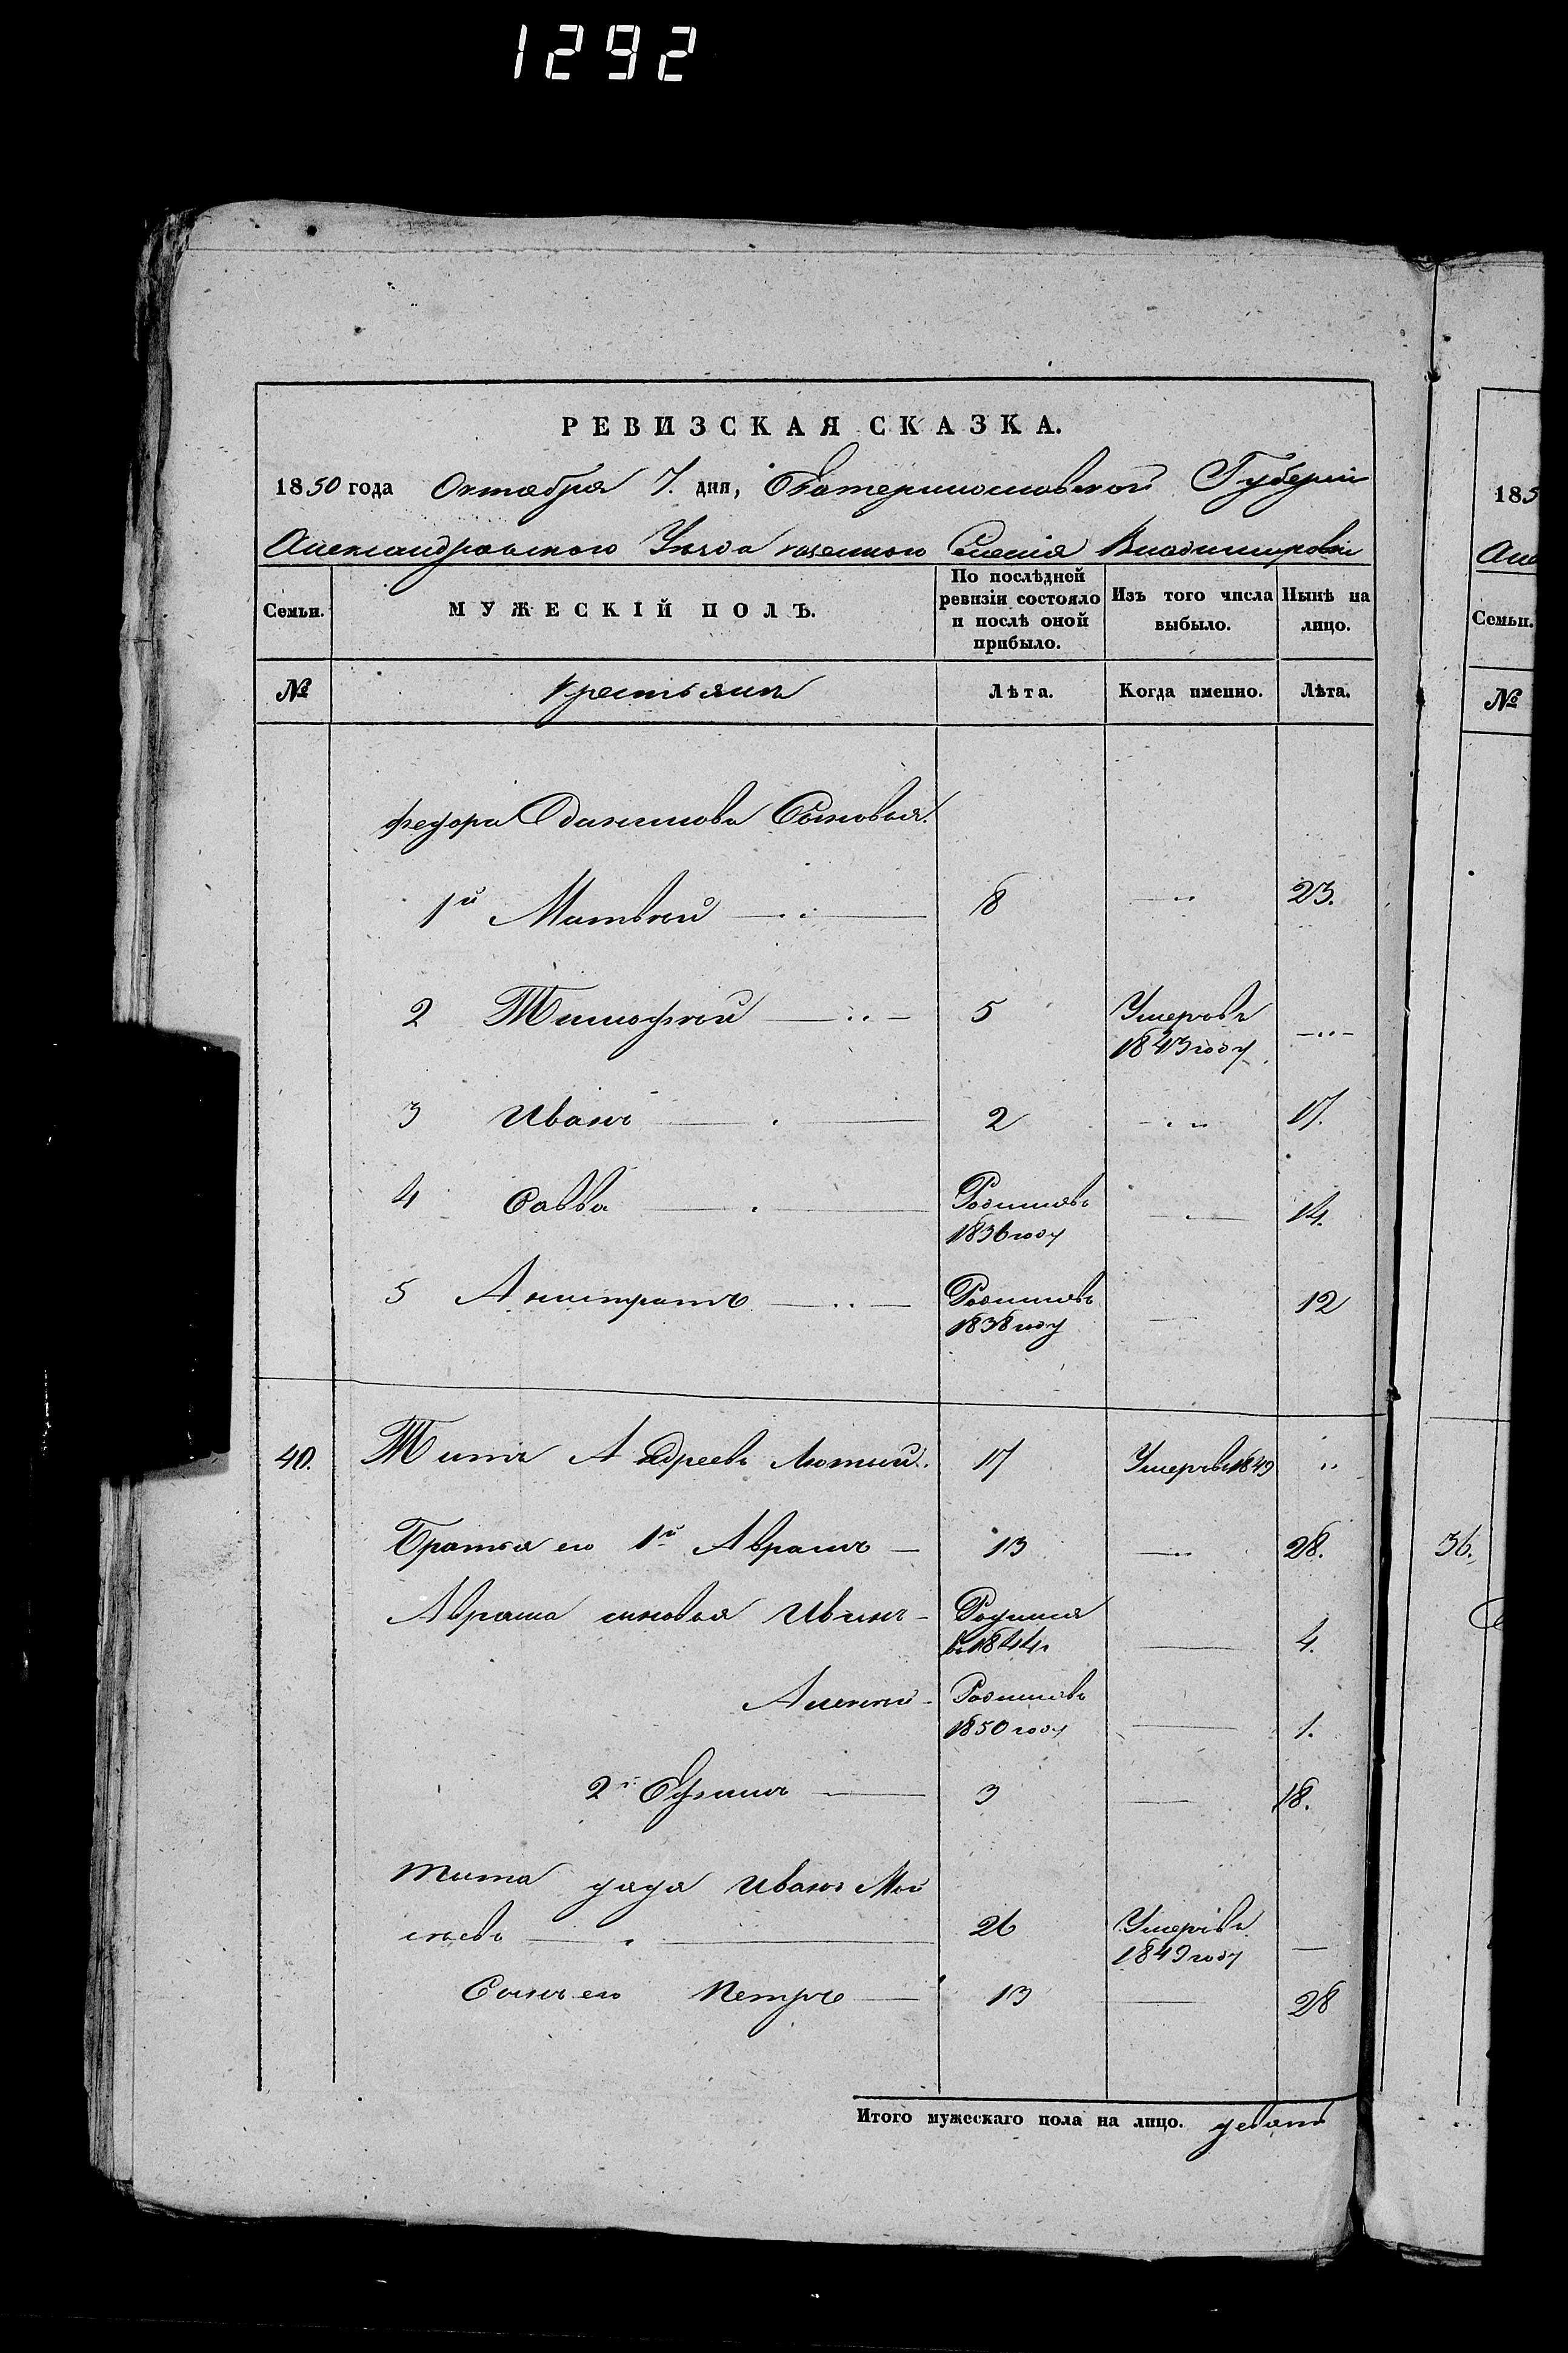 1292
РЕВИЗСКАЯ СКАЗКА.
1850 года Октября 7. дня, Екатеринославской Губерніи
Александровского Уезда казенного Селенія Владимировки
Семьи.
МУЖЕСКІЙ ПОЛЪ.
По послѣдней ревизіи состояло и послѣ оной прибыло.
Изъ того числа выбыло.
Нынѣ на лицо.
№ Крестьянъ Лѣта. Когда именно. Лѣта.
Федора Данилова Сыновья.
1й Матвей 8 23.
2 Тимофей 5 Умеръ въ 1843 году
3 Иванъ 2 17.
4 Савва Родился въ 1836 году 14.
5 Аникстратъ Родился въ 1838 году 12
40. Титъ Андреевъ Лютый. 17 Умеръ въ 1849
Братья его 1й Аврамъ 13 28.
Аврама сыновья Иванъ Родился въ 1844 4.
Алексей Родился въ 1850 году 1.
2й Ефимъ 3 18.
Тита дядя Иванъ Мой
сеевъ 26 Умеръ въ 1849 году
Сынъ его Петръ 13 28
Итого мужескаго пола на лицо. девять
185
Але
Семьи.
№
36.